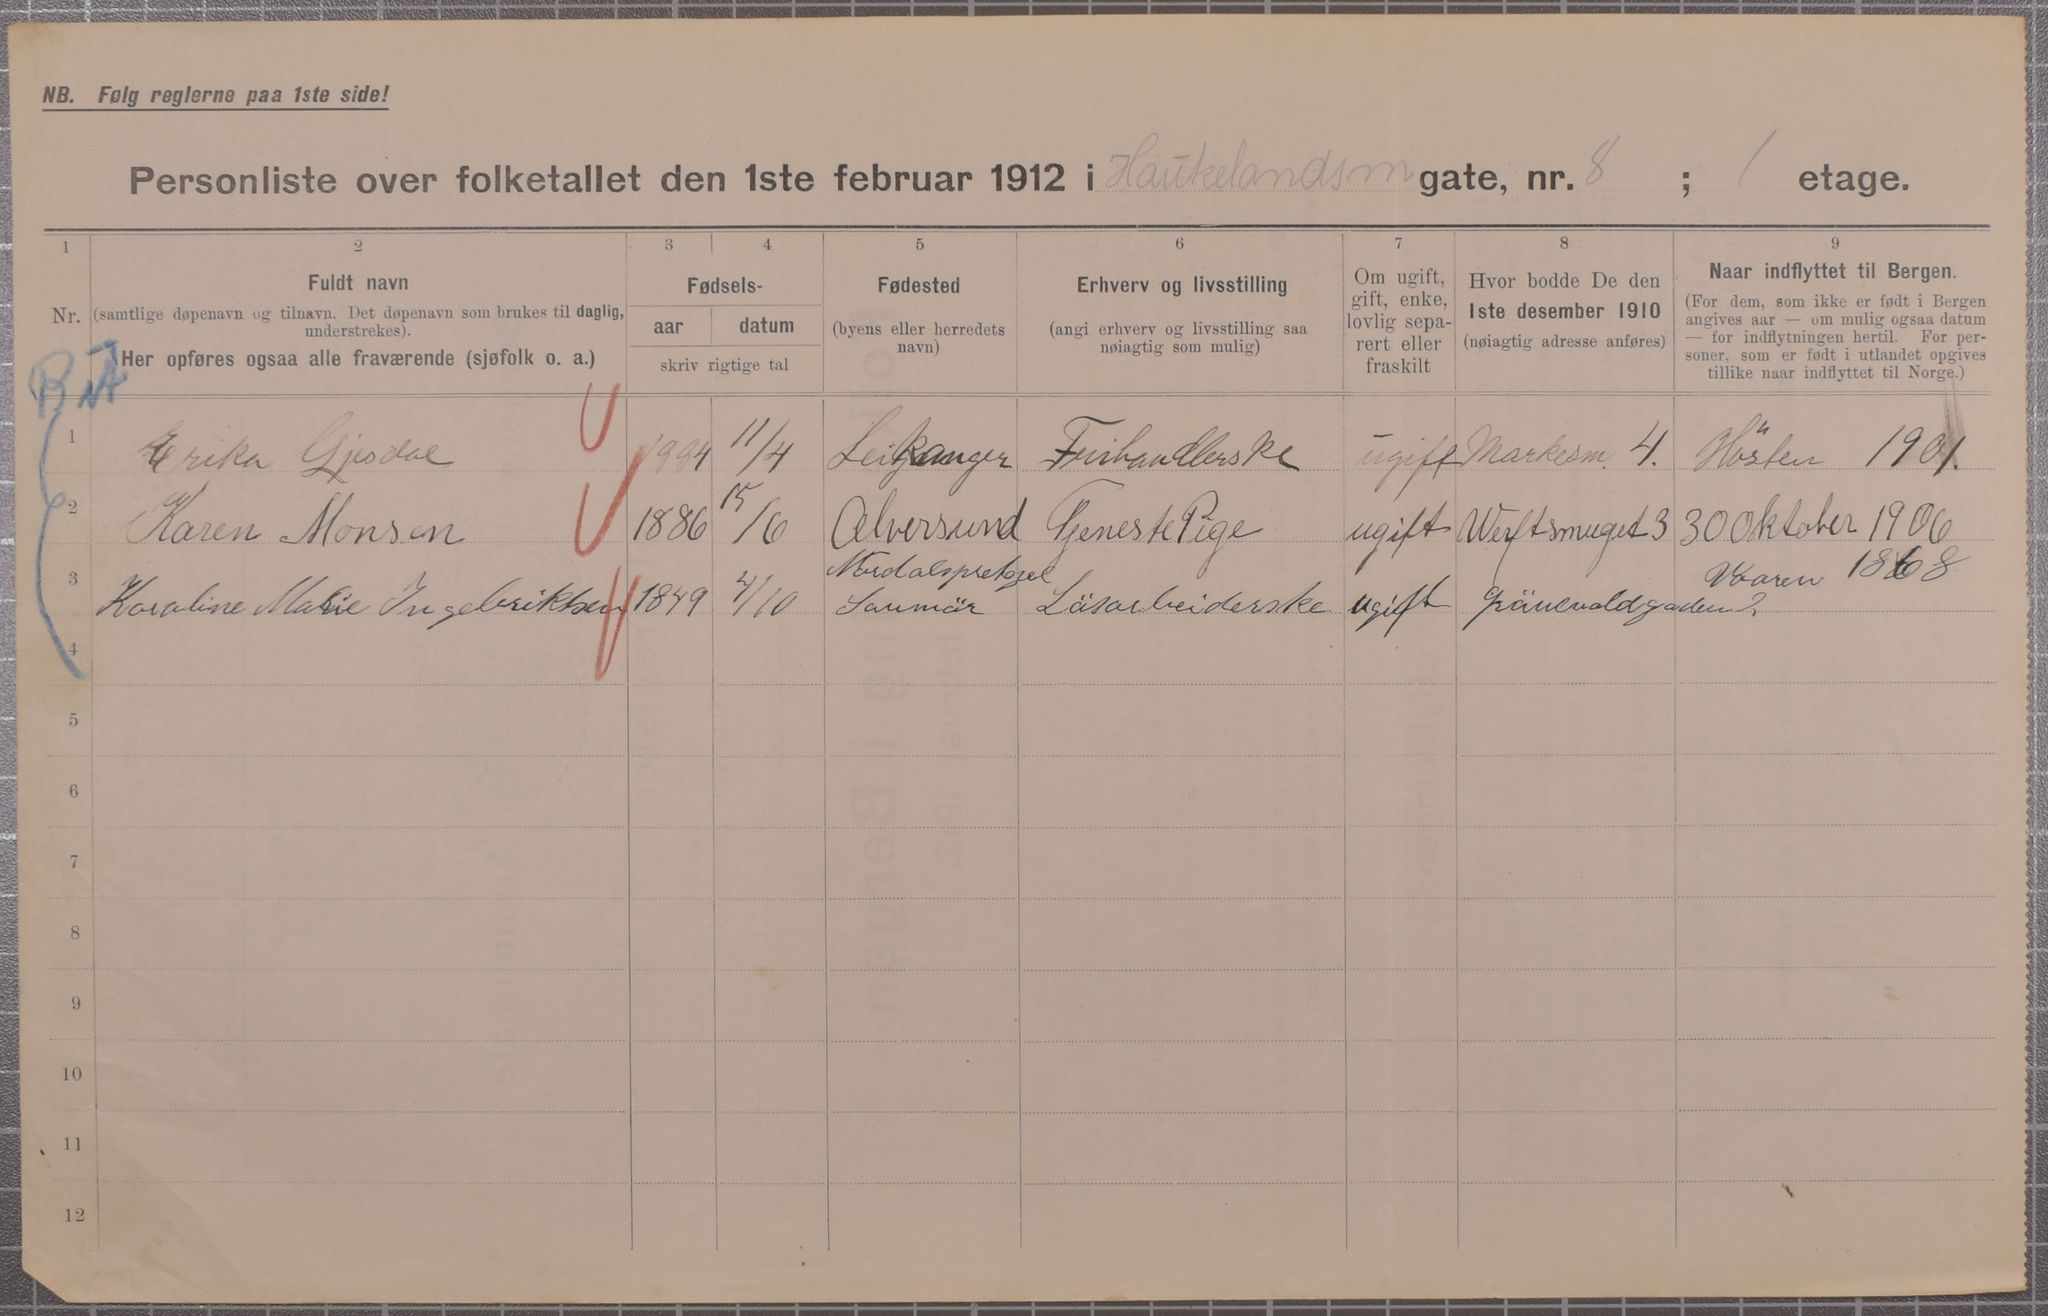 NB. Følg reglerne paa 1ste side!
Personliste over folketallet den 1ste februar 1912 i Haukelandsm gate, nr. 8 ; 1 etage.
1 2 3 4 5 6 7 8 9
Nr.
Fuldt navn
(samtlige døpenavn og tilnavn. Det døpenavn som brukes til daglig,
understrekes).
Her opføres ogsaa alle fraværende (sjøfolk o. a.)
Fødsels-
aar datum
skriv rigtige tal
Fødested
(byens eller herredets
navn)
Erhverv og livsstilling
(angi erhverv og livsstilling saa
nøiagtig som mulig)
Om ugift,
gift, enke,
lovlig sepa-
rert eller
fraskilt
Hvor bodde De den
1ste desember 1910
(nøiagtig adresse anføres)
Naar indflyttet til Bergen.
(For dem, som ikke er født i Bergen
angives aar — om mulig ogsaa datum
— for indflytningen hertil. For per-
soner, som er født i utlandet opgives
tillike naar indflyttet til Norge.)
1 Erika Gjesdal 1884 11/4 Leikanger ugift Markesm. 4. Hösten 1901.
2 Karen Monsen 1886 15/6 Alversund Tjeneste Pige ugift Werftsmuget 3 30 Oktober 1906
3 Karoline Marie Ingebriktsen 1849 4/10 Sanmör ugift Vaaren 1868
4
5
6
7
8
9
10
11
12